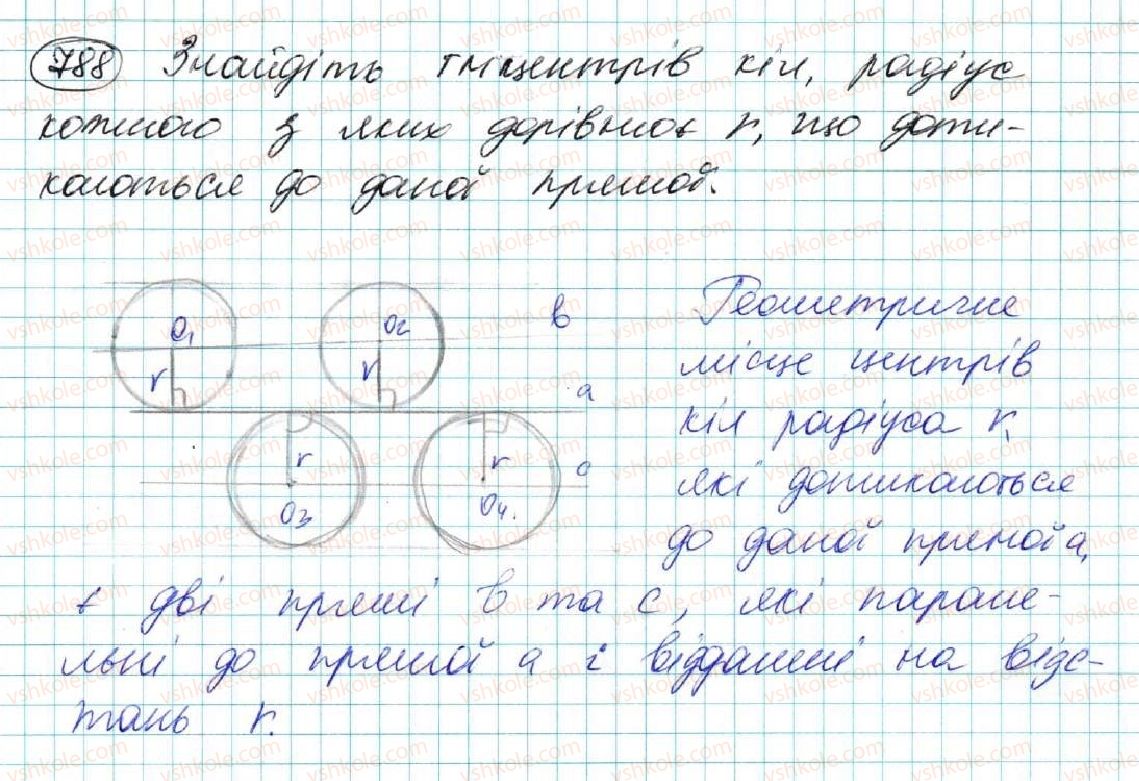 788 Знайдіть гмцентрів кіл, радіус
кожного з яких дорівнює r, що доти-
каються до даної прямої.
O1 O2 в
r r а
r r с
O3 O4.
Геометричне
місце центрів
кіл радіуса r,
які дотикаються
до даної прямої а,
є дві прямі в та с, які парале-
льні до прямої а і віддалені на відс-
тань r.